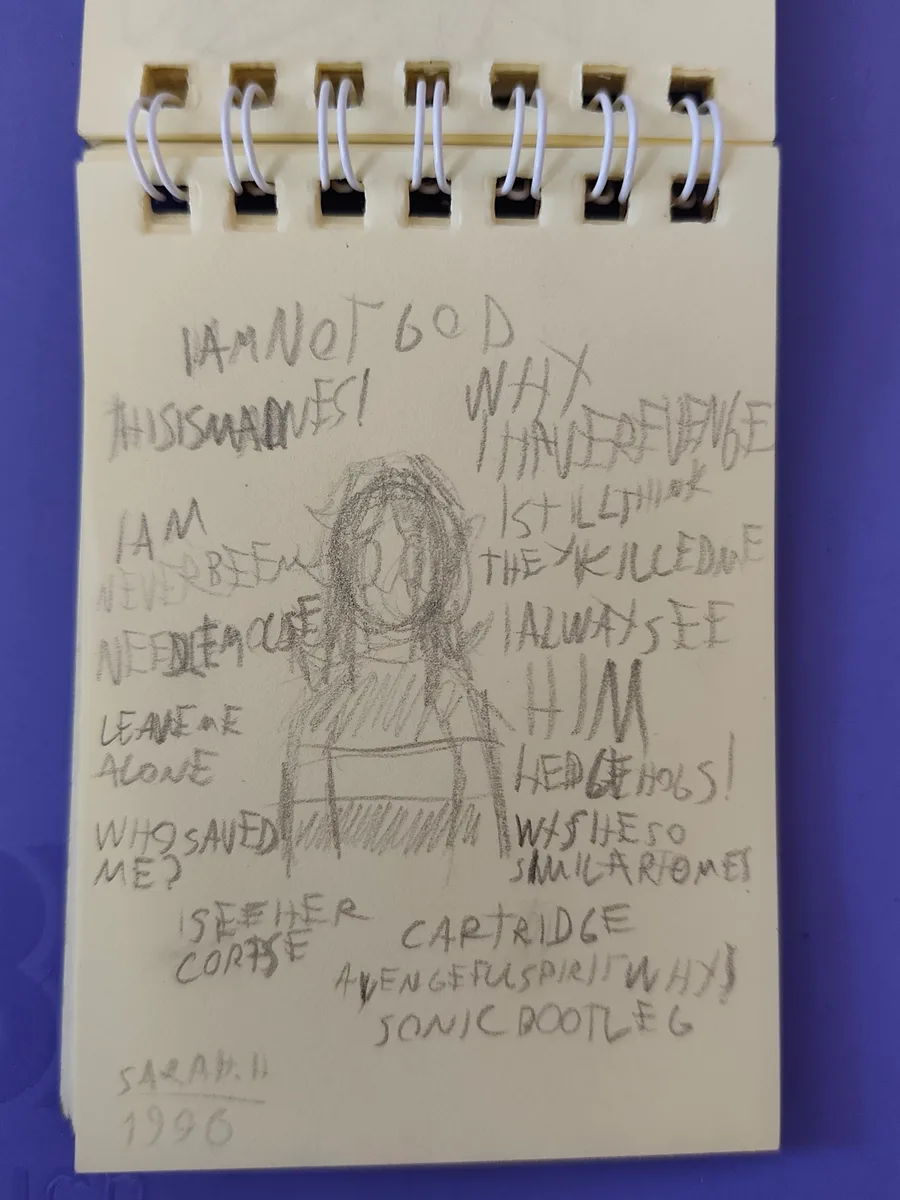 I AM NOT GOD
THIS IS MADNES!
WHY
I HAVE REVENGE
I STILL THINK
THEY KILLED ME
I AM
NEVER BEEN
NEEDLEMOUSE
I ALWAY SEE
HIM
LEAVE ME
ALONE
HEDGEHOGS!
WHO SAVED
ME?
WHY HE SO
SIMILAR TO ME?
I SEE HER
CORPSE
CARTRIDGE
AVENGEFULSPIRIT WHY?
SONIC BOOTLEG
SARAH.H
1996